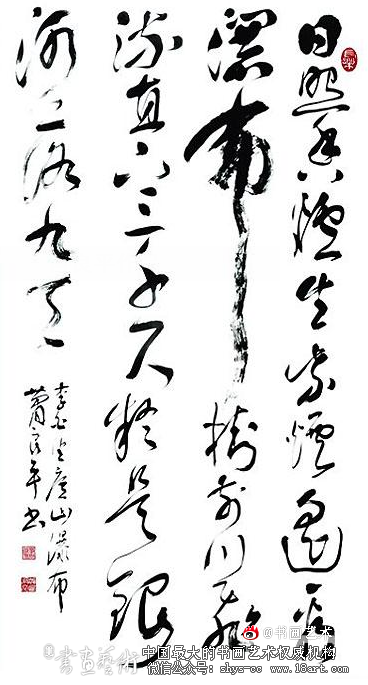 日照香爐生紫煙遙看
瀑布掛前川飛
流直下三千尺疑是銀
河落九天
李白望廬山瀑布
蕭平书
@书画艺术
書畫藝術
中国最大的书画艺术权威机构
微信公众号：shys-cc www.18art.com